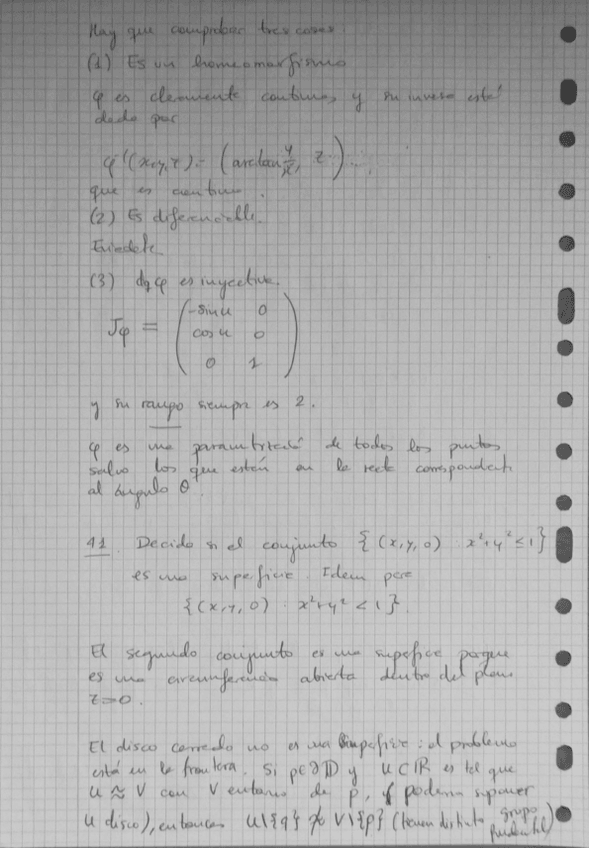 Hay que comprobar tres cosas
(1) Es un homeomorfismo
φ es claramente continua, y su inversa está
dada por
φ⁻¹(x,y,z) = (arctan y/x, z)
que es continua.
(2) Es diferenciable.
(3) dqφ es inyectiva.
Jφ = ( -sin u 0
cos u 0
0 1 )
y su rango siempre es 2.
φ es una de todos los puntos
salvo los que están en la recta correspondiente
al ángulo θ
41. Decido si el conjunto { (x,y,0) : x²+y² ≤ 1 }
es una superficie. Idem para
{ (x,y,0) : x²+y² < 1 }.
El segundo conjunto es una superficie porque
es una circunferencia abierta dentro del plano
z=0.
El disco cerrado no es una superficie: el problema
está en la frontera. Si p∈∂D y U⊂ℝ es tal que
U ≈ V con V entorno de p, (podemos suponer
U disco), entonces U\{q} ≉ V\{p} (tienen distinto grupo